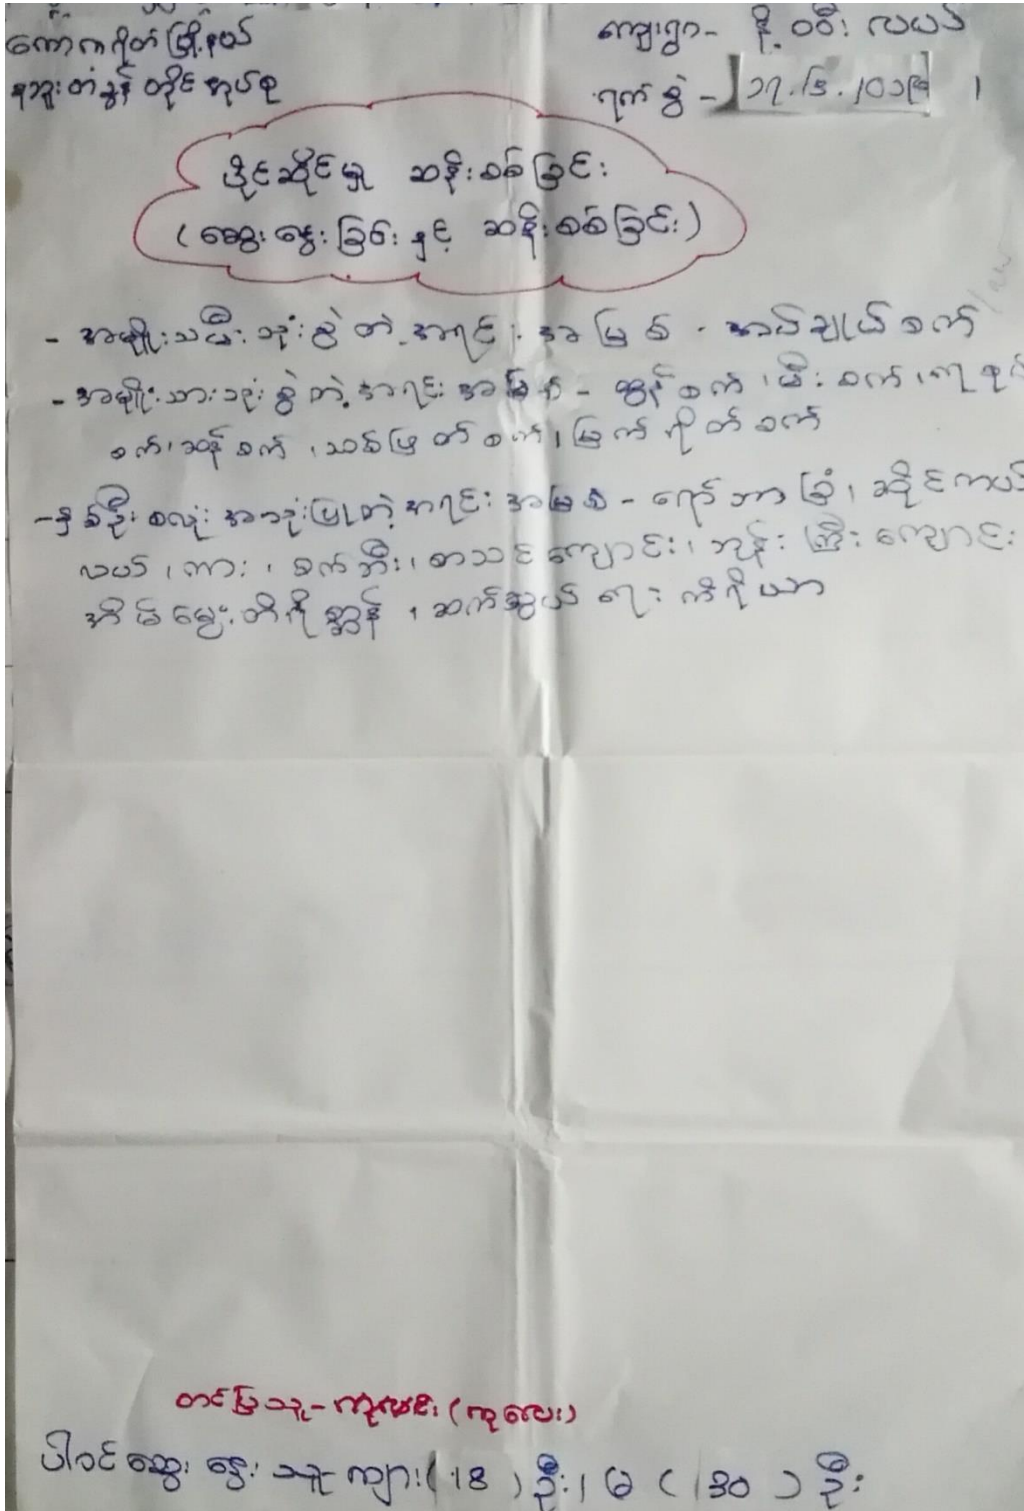 ကော့ကရိတ်မြို့နယ်
ကျေးရွာ- နို့ဝီးလယ်
နဘူးတံခွန် တိုင်အုပ်စု
ရက်စွဲ -
ပိုင်ဆိုင်မှု ဆန်းစစ်ခြင်း
(ဆွေးနွေးခြင်းနှင့် ဆန်းစစ်ခြင်း)
- အမျိုးသမီးသုံးစွဲတဲ့အရင်းအမြစ် - အပ်ချုပ်စက်
- အမျိုးသားသုံးစွဲတဲ့အရင်းအမြစ် - ထွန်စက်၊ မီးစက်၊ ရေစုပ်
စက်၊ ဆန်စက်၊ သစ်ဖြတ်စက်၊ မြက်ရိတ်စက်
- နှစ်ဦးစလုံးအသုံးပြုတဲ့အရင်းအမြစ် - ရော်ဘာခြံ၊ ဆိုင်ကယ်
လယ်၊ ကား၊ စက်ဘီး၊ စာသင်ကျောင်း၊ ဘုန်းကြီးကျောင်း
အိမ်မွေးတိရိစ္ဆာန်၊ ဆက်သွယ်ရေးကိရိယာ
တင်ပြသူ- (ကုလေး)
ပါဝင်ဆွေးနွေးသူ ကျား (18) ဦး၊ မ (30) ဦး